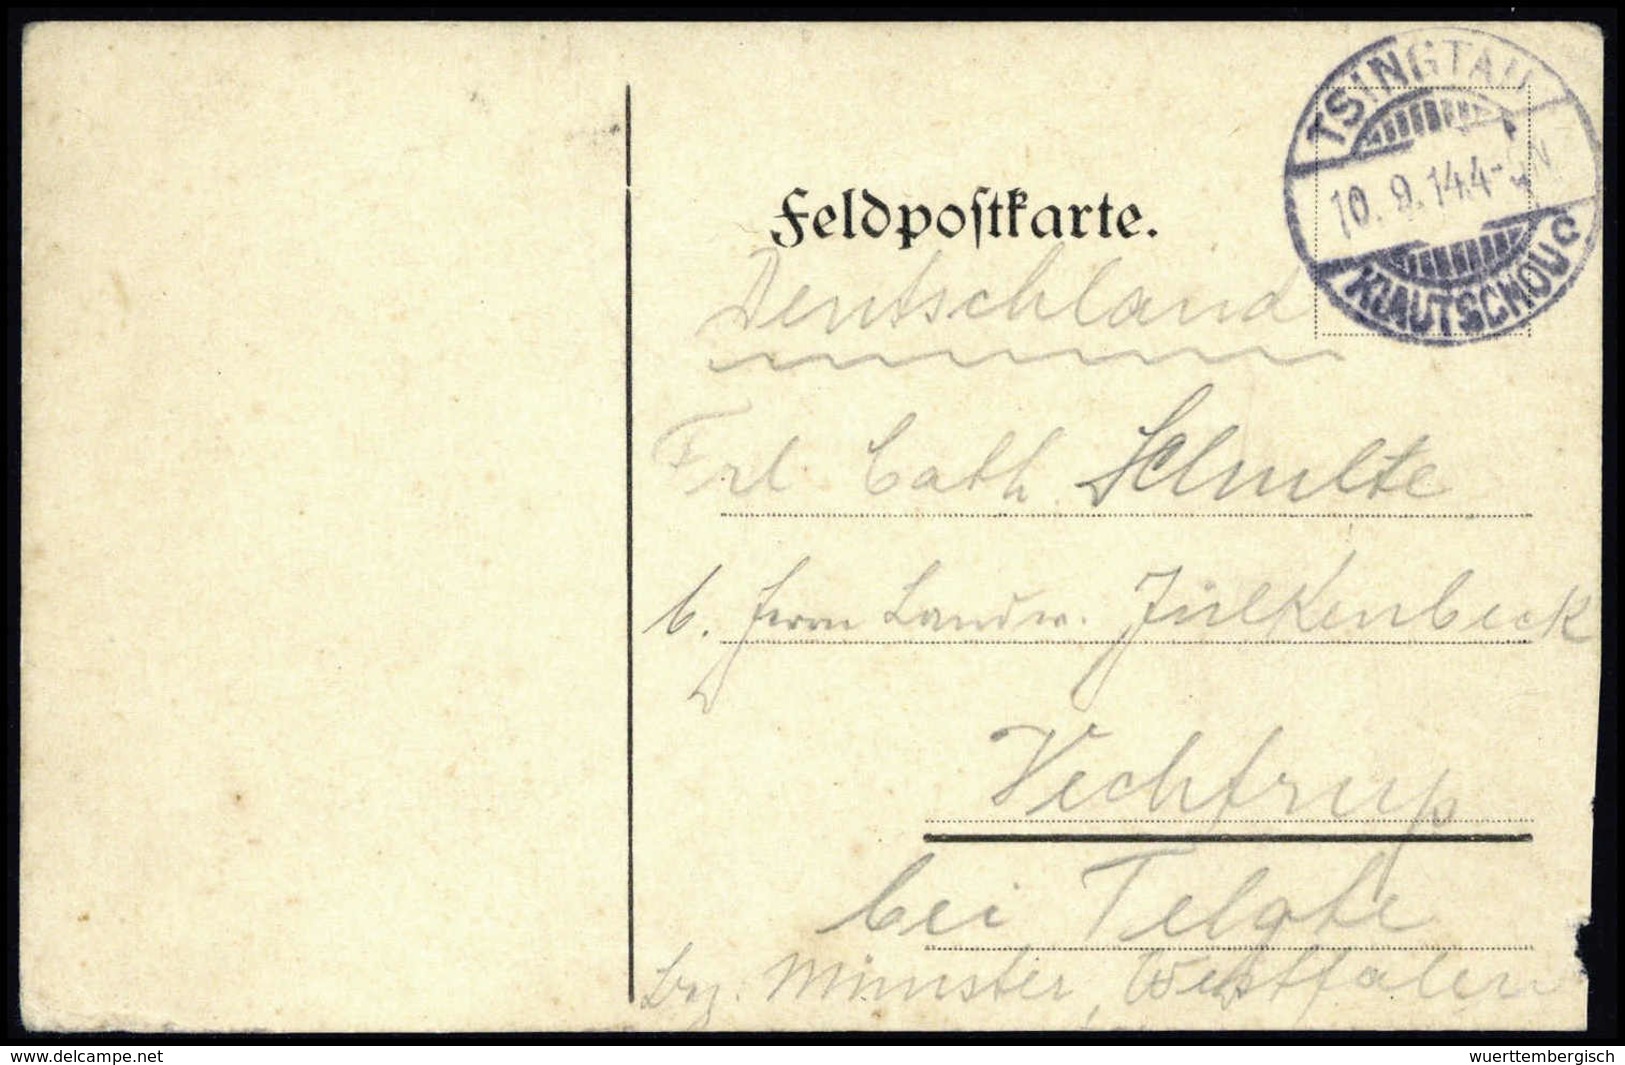 TSINGTAU
10. 9. 14 4-5N
KIAUTSCHOU C
Feldpostkarte.
Deutschland
Frl Cath Schulte
b. Herrn Landw. Jülkenbeck
Vechtrup
bei Telgte
Bez. Münster, Westfalen
www.delcampe.net
wuerttembergisch